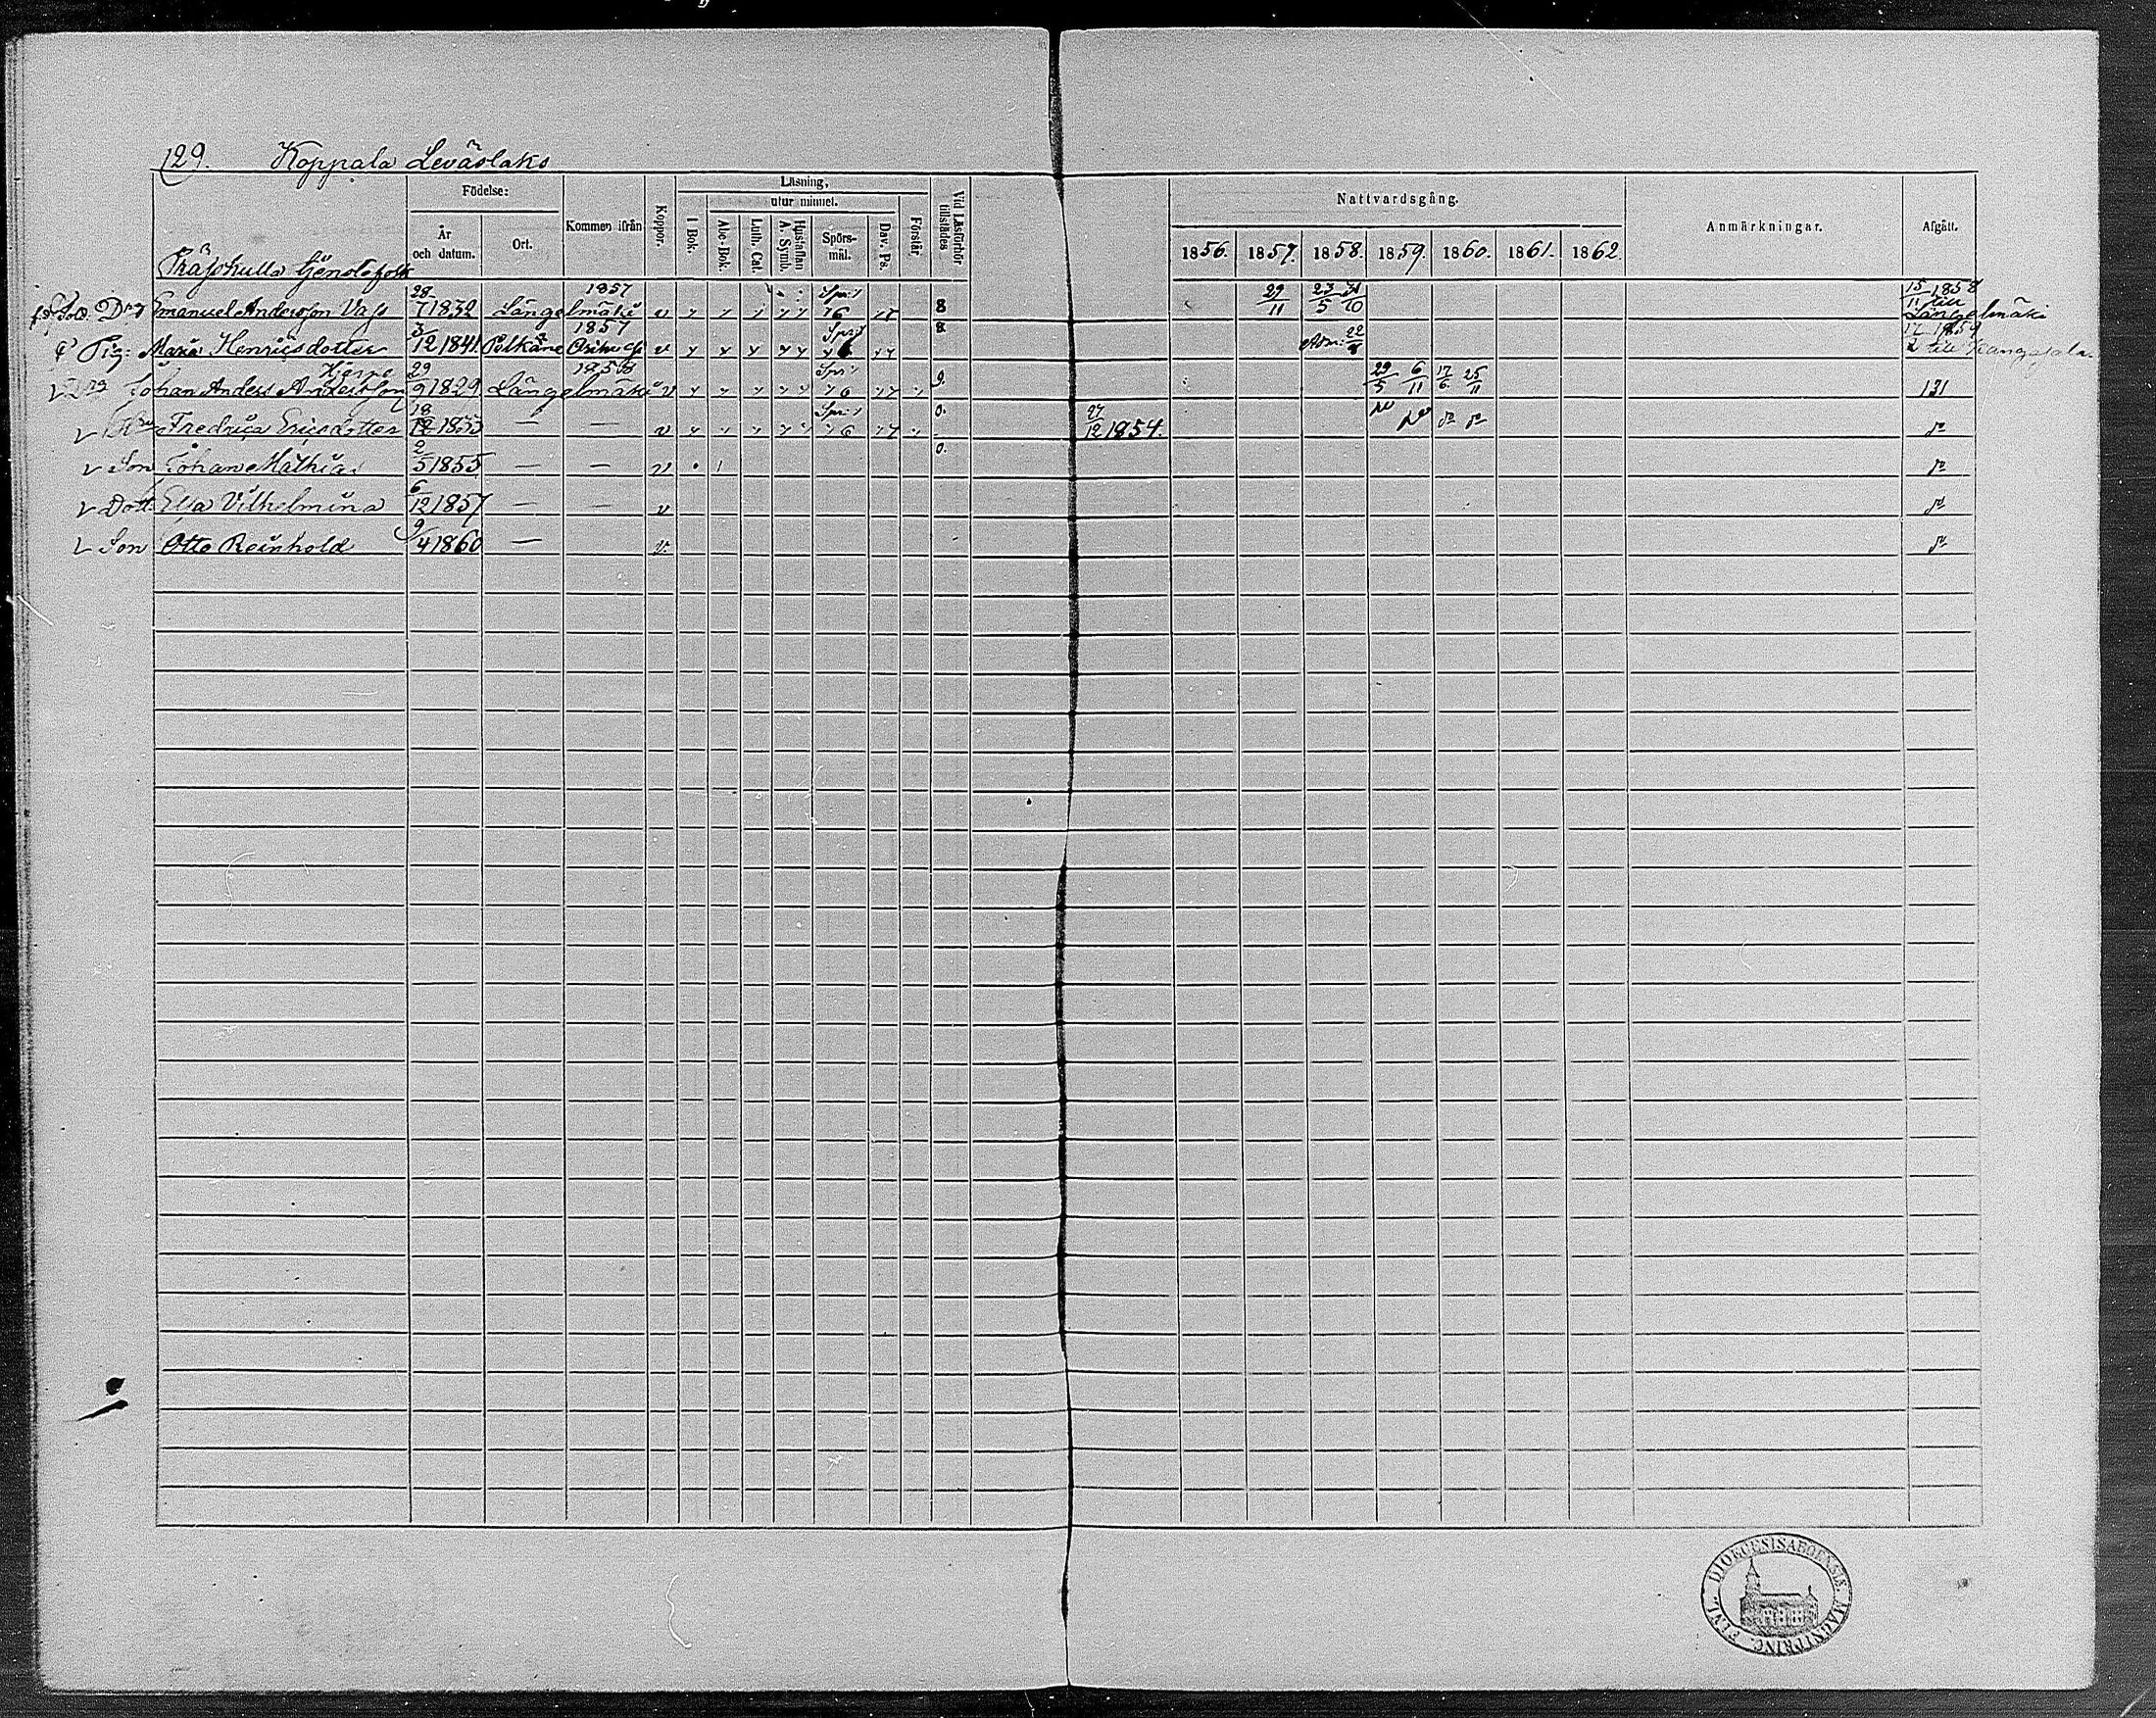 129. Koppala Leväslaks
Födelse:
Läsning,
utur minnet.
Nattvardsgång.
Anmärkningar.
Afgått.
År och datum.
Ort.
Kommen ifrån
Koppor.
I Bok.
Abc-Bok.
Luth. Cat.
Hustaflan A. Symb.
Spörs-mål.
Dav. Ps.
Förstår.
Vid Läsförhör tillstädes
1856. 1857. 1858. 1859. 1860. 1861. 1862.
tjenstefolk
Sold. Drg Emanuel Andersson Vass 28/7 1832 Längelmäki 1857 v 8 29/11 23/5 31/10 15/11 1858 till Längelmäki
Pig: Maria Henricsdotter 3/12 1841. Pelkäne 1857 v 8 Adm: 22/8 17/2 1859 till Kangasala.
Drg Johan Anders Andersson Hjerpe 29/9 1829 Längelmäki 1858 v 9. 29/5 6/11 17/6 25/11 131
Hru Fredrica Ericsdotter 18/12 1833 — — v 0. 27/12 1854. do do do do do
Son Johan Mathias 2/5 1855 — — v 0. do
Dott: Elsa Vilhelmina 6/12 1857 — — v do
Son Otto Reinhold 9/4 1860 — v. do
DIOECESIS ABOENSIS. MAGNI PRINC. FINL.